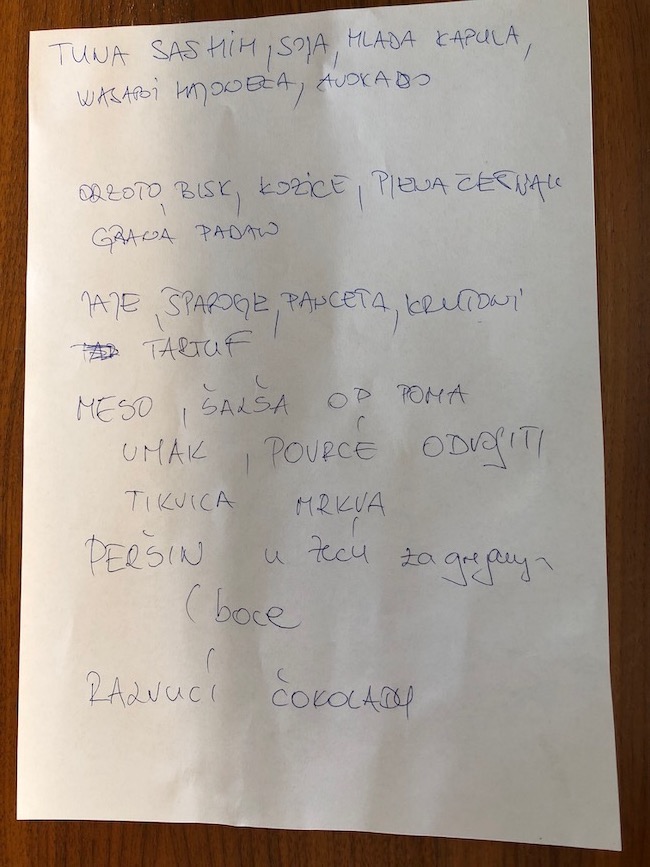 TUNA SASHIM, SOJA, MLADA KAPULA,
WASABI MAJONEZA, AVOKADO
ORZOTO, BISK, KOZICE, PJENA ČEŠNJAK
GRANA PADANO
JAJE, ŠPAROGE, PANCETA, KRUTONI
TARTUF
MESO, ŠALŠA OD POMA
UMAK, POVRĆE ODVOJITI
TIKVICA MRKVA
PERŠIN u za grijanje
( boce
RAZVUCI ČOKOLADU